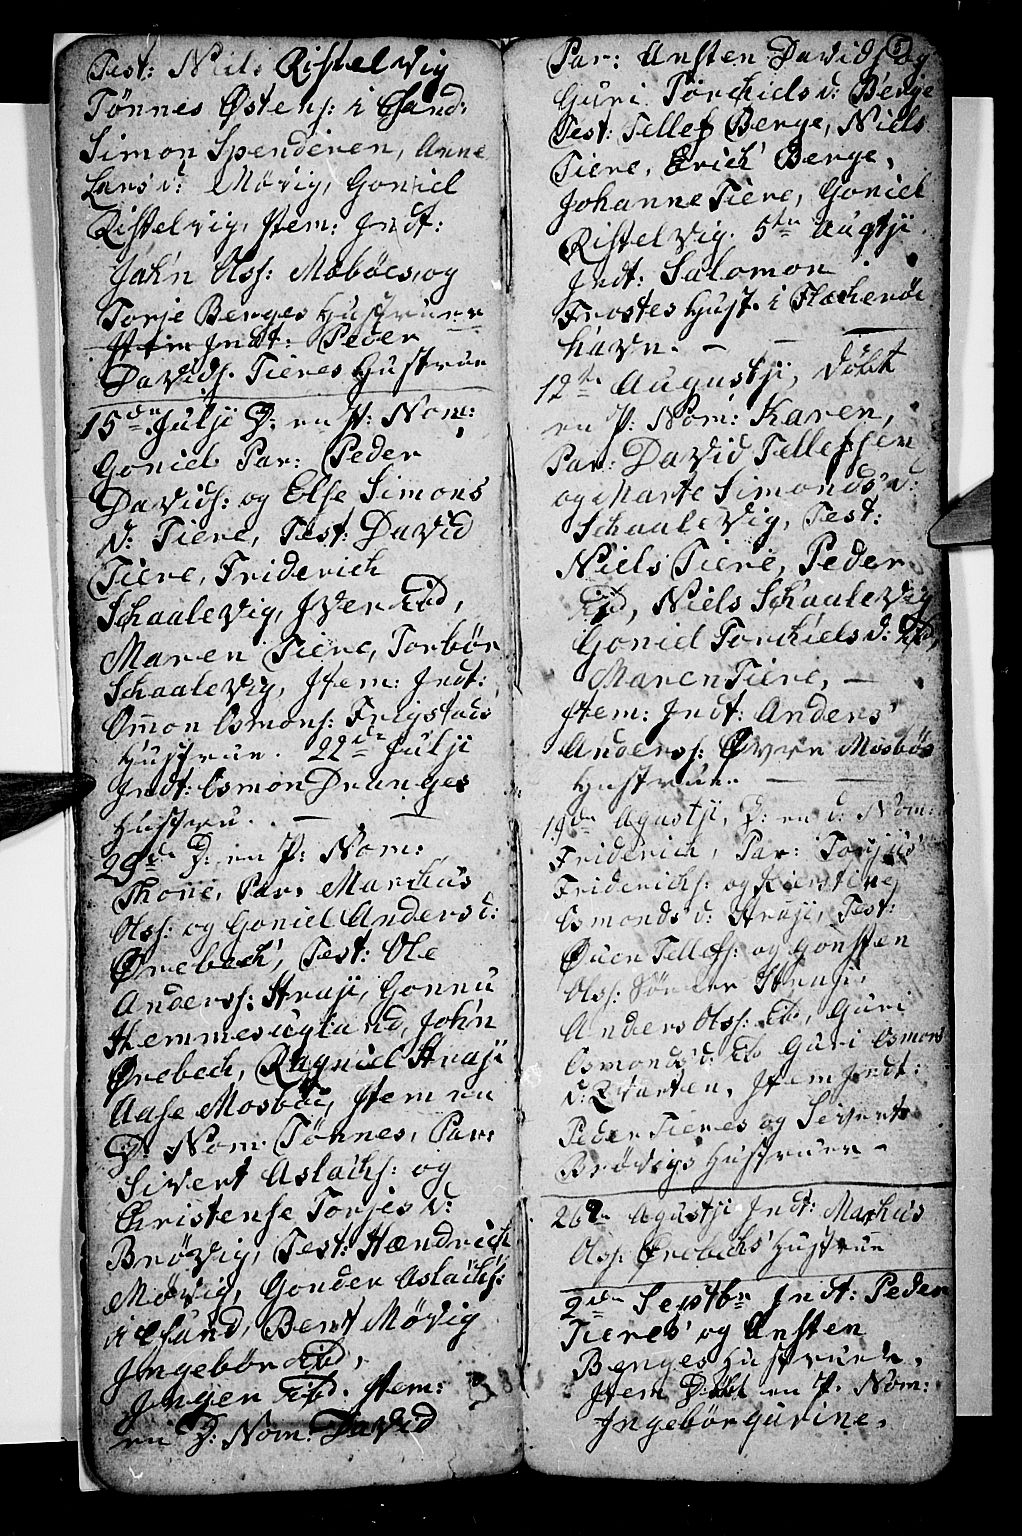 Test: Niels Ristelvig
Tönnes Østens: i Esund:
Simon Spenderen, Anne
Lars d: Mövig, Goniel
Ristelvig, Item: Indt:
Jahn Olss: Moböes, og
Torje Berges Hustruer
Item Indt: Peder
Davids. Tieres Hustrue
15de Julji D: en P: Nom:
Goniel Par: Peder
Davids: og Else Simons
d: Tiere, Test: David
Tiere, Friderich
Schaalevig, Iver ibd,
Maren Tiere, Torbör
Schaalevig, Item: Indt:
Omon Osmons: Frigstads
Hustrue. 22de Julji
Indt: Osmon Dranges
Hustru.
29de D: en P: Nom:
Thone, Par: Marchus
Olss: og Goniel Anders d:
Ørebech, Test: Ole
Anderss: Straji, Gonnu
Hemmesugland, John
Ørebech, Ragniel Straji
Aase Mosböe, Item en
D: Nom: Tönnes, Par:
Sivert Aslachs: og
Christense Torjes d:
Brövig, Test: Hændrich
Mövig, Gonder Aslachs:
i Esund, Bent Mövig
Ingebör ibd,
Ingen ibd. Item:
en D: Nom: David
Par: Ansten Davids: og
Guri Torchiels d: Berge
Test: Tellef Berge, Niels
Tiere, Erich Berge,
Johanne Tiere, Goniel
Ristelvig. 5te Augtji
Indt: Salomon
Frostes Hust. i Flecherøe
havn.
12te Augustji, döbt
en P: Nom: Karen,
Par: David Tellefsen
og Marte Simonds d:
Schaalevig, Test:
Niels Tiere, Peder
ibd, Niels Schaalevig
Goniel Torchiels d: ibd,
Maren Tiere,
Item: Indt: Anders
Anderss: Øvre Mosbös
Hustrue.
19de Agustji, D: en d: Nom:
Friderich, Par: Torjus
Friderichs: og Kierstine
Osmonds d: Straji, Test:
Øuen Tellefs: og Gonsten
Olss: Sönder Straji,
Anders Olss: ib, Guri
Osmonds d: ib Guri Osmons
d: Qvarten, Item Indt:
Peder Tieres og Siverts
Brövigs Hustruer
26de Agustji Indt: Marhus
Olss: Ørebechs Hustrue
2de Septbr Indt: Peder
Tieres og Ansten
Berges Hustruer,
Item Döbt en P. Nom:
Ingebör gurine,